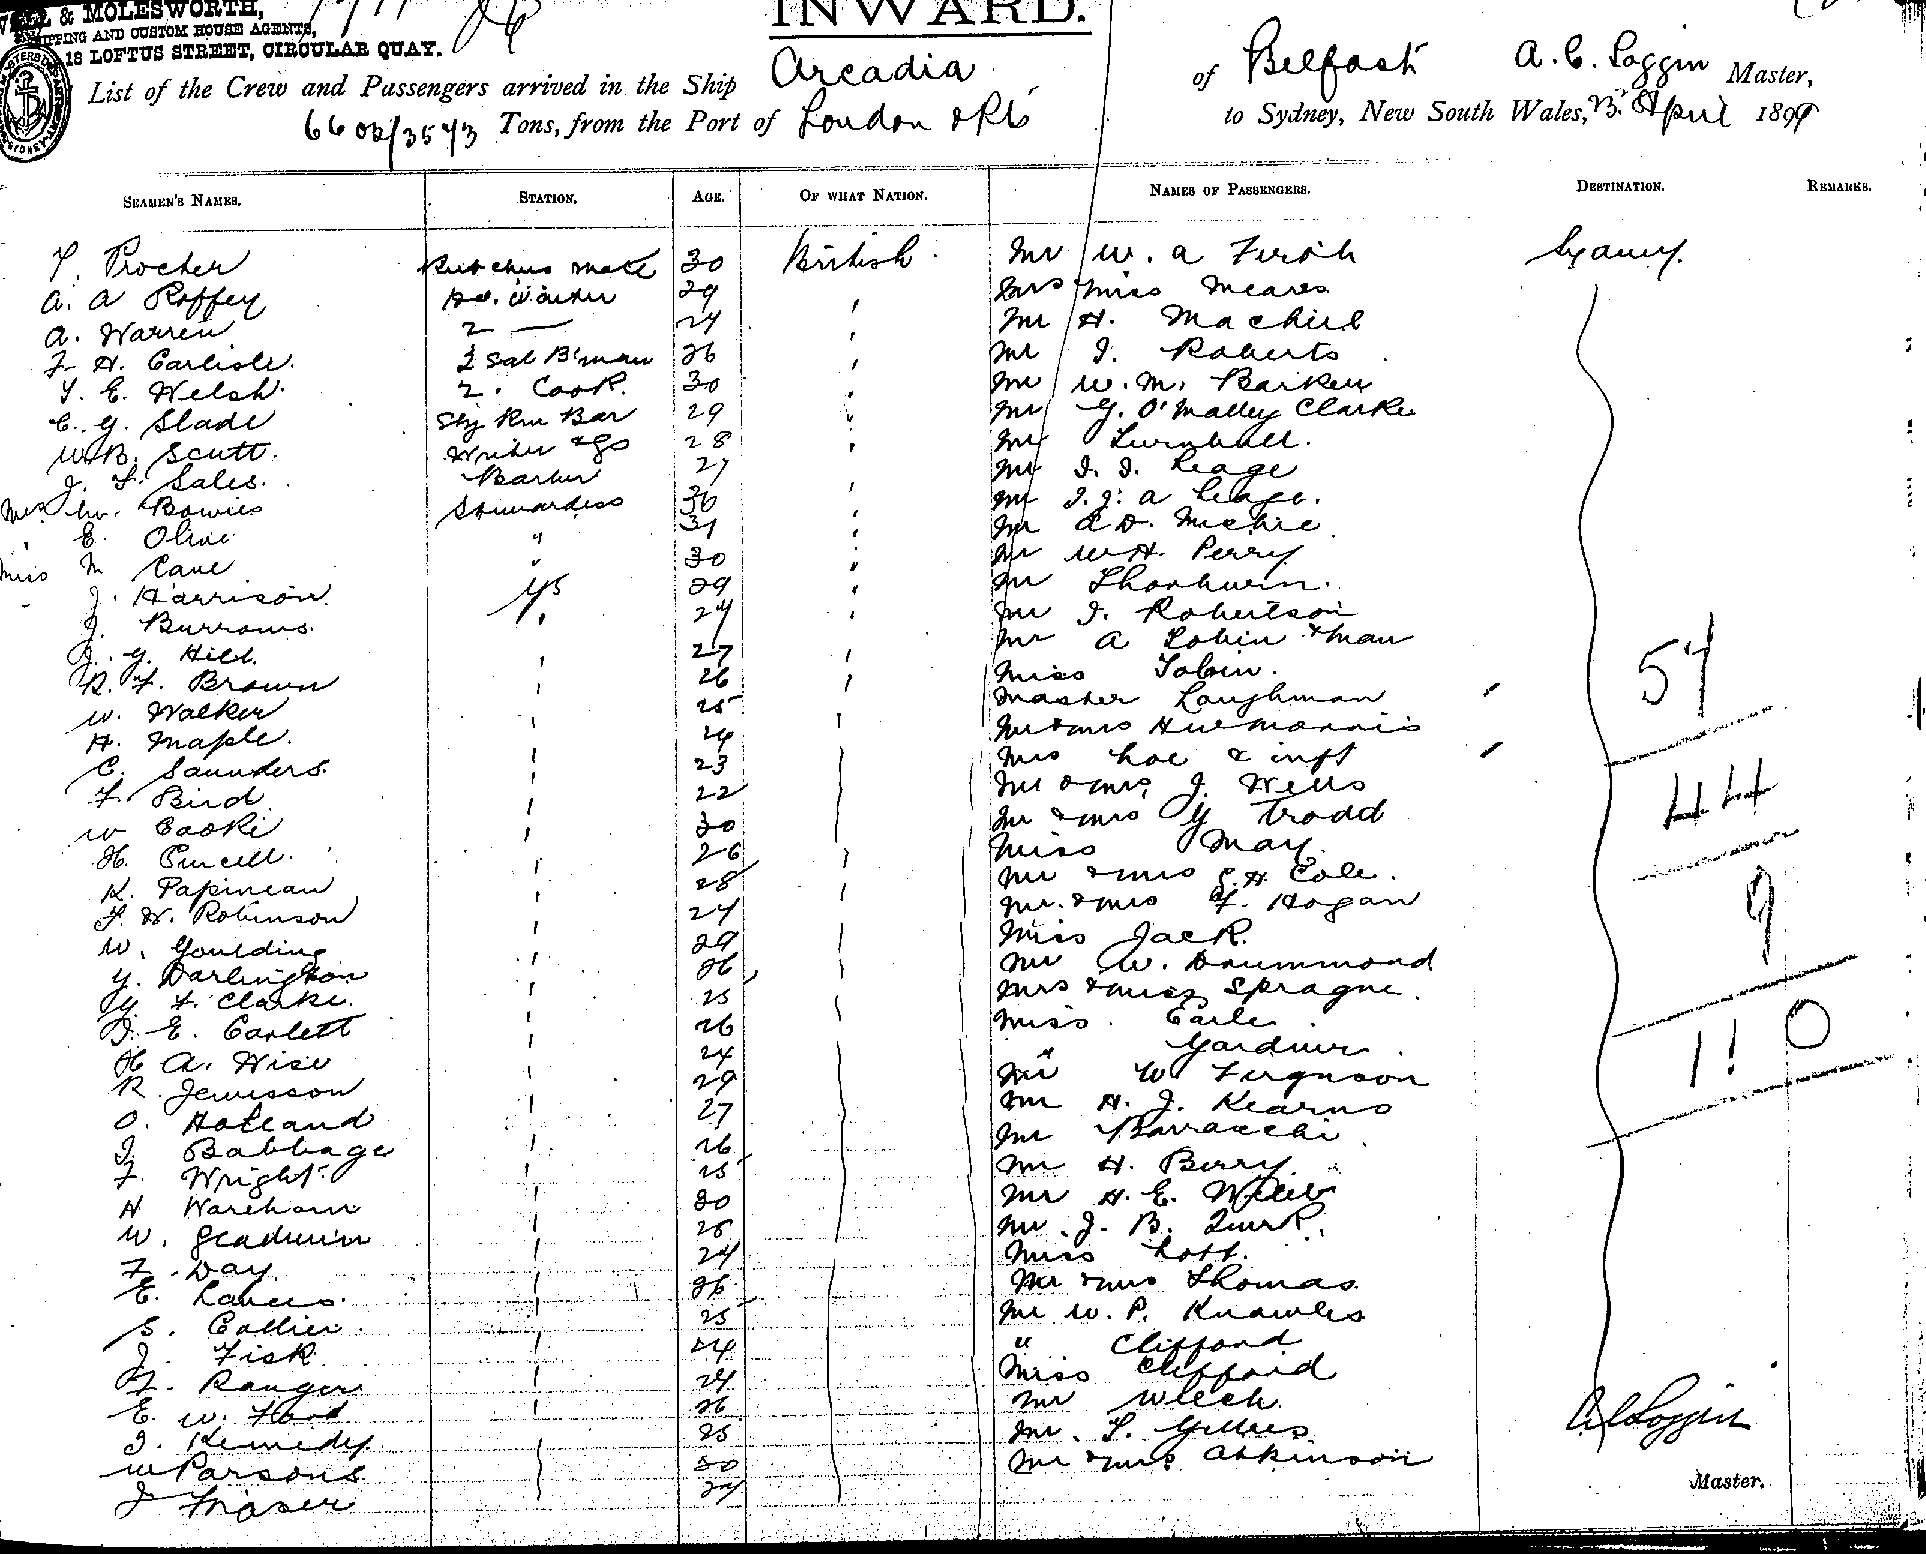 & MOLESWORTH,
SHIPPING AND CUSTOM HOUSE AGENTS,
18 LOFTUS STREET, CIRCULAR QUAY.
INWARD.
List of the Crew and Passengers arrived in the Ship Arcadia of Belfast A. C. Loggin Master,
6602/3573 Tons, from the Port of London & Pts to Sydney, New South Wales, April 1899
SEAMEN'S NAMES. STATION. AGE. OF WHAT NATION. NAMES OF PASSENGERS. DESTINATION. REMARKS.
T. Procter Butchers mate 30 British Mr W. A Firth Sydney
A. A Roffey 29 Mrs Miss Meares
A. Warren 2 — 24 Mr H.
F. H. Carlisle 2 Sal B'man 26 Mr J. Roberts
T. E. Welsh. 2. Cook. 30 Mr W. M. Barker
C. G. Slade Bar 29 Mr G. O'Malley Clarke
W. B. Scutt. Writer 28 Mr Turnbull.
J. T. Sales. Barber 27 Mr
Mrs Bowies Stewardess 36 Mr
E. Olive " 31 Mr
Miss M Cane " 30 Mr W H. Perry
J. Harrison GS 29 Mr
J. Burrows. 24 Mr J. Robertson
J. G. Hill. 27 Mr A Tobin & man
R. F. Brown 26 Miss Tobin.
W. Walker 25 Master Laughman
H. Maple. 24 Mr & Mrs
C. Saunders. 23 Mrs & inft
F. Bird 22 Mr & Mrs J. Wells
W Cooke 30 Mr & Mrs G Trodd
H. Purcell. 26 Miss May
K. Papineau 28 Mr & Mrs H Cole.
F. W. Robinson 24 Mr. & Mrs F. Hogan
W. Goulding 29 Miss Jack.
G. Darlington 26 Mr W. Drummond
G F. Clarke. 25 Mrs & Miss Sprague.
J. E. Corlett 26 Miss Earle
H A. Wise 24 " Gardner.
R. Jewisson 29 Mr W Ferguson
O. Holland 27 Mr H. J. Kearns
J. Babbage 26 Mr Barracchi
F. Wright 25 Mr H. Berry.
H Wareham 30 Mr H. E. Webb
W. Gladwin 28 Mr J. B. Quirk.
F. Day. 24 Miss Lott.
E. 26 Mr & Mrs Thomas
S. Collier. 25 Mr W. P. Knowles
J. Fisk. 24 " Clifford
F. Ranger 24 Miss Clifford
E. W. Ford 26 Mr
J. Kennedy 25 Mr. T. Gillies
W Parsons 30 Mr & Mrs Atkinson
J Fraser 24
57
44
9
110
A C Loggin
Master.